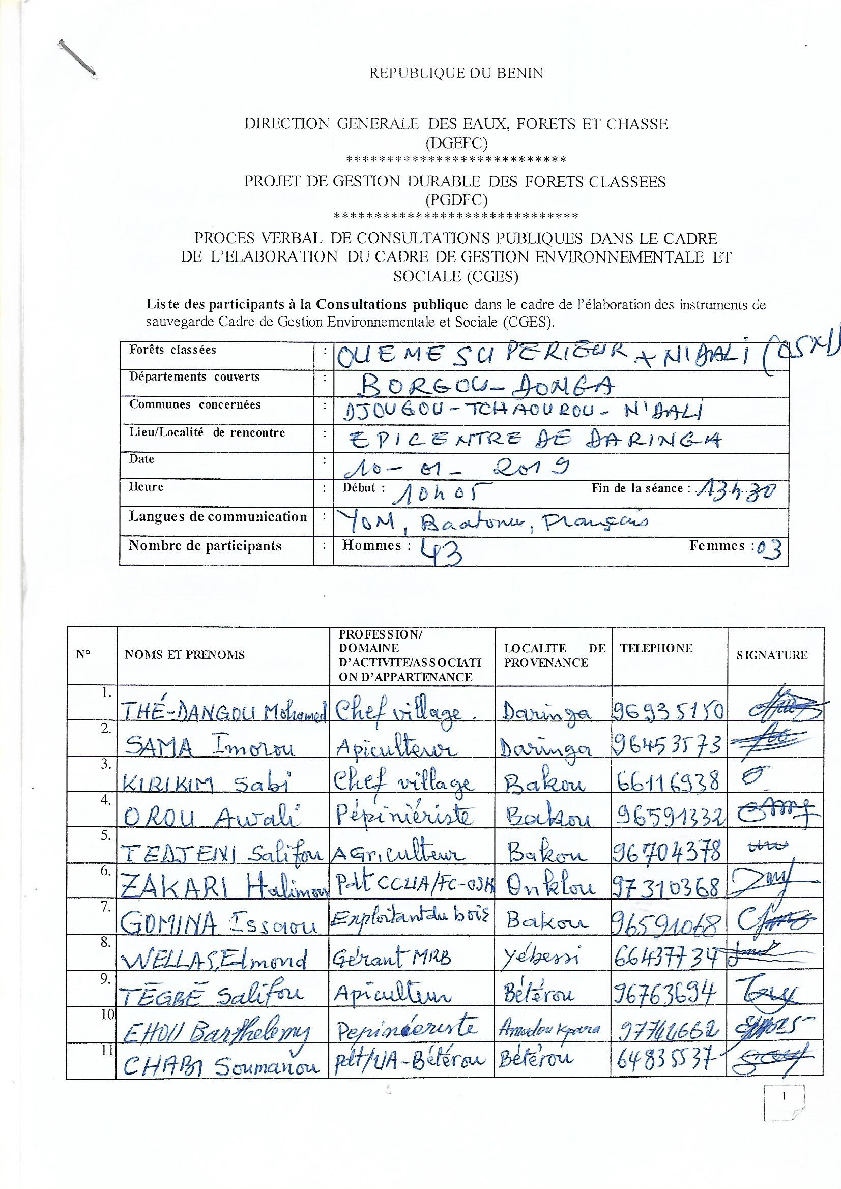 REPUBLIQUE DU BENIN
DIRECTION GENERALE DES EAUX, FORETS ET CHASSE
(DGEFC)
***************************
PROJET DE GESTION DURABLE DES FORETS CLASSEES
(PGDFC)
******************************
PROCES VERBAL DE CONSULTATIONS PUBLIQUES DANS LE CADRE
DE L'ELABORATION DU CADRE DE GESTION ENVIRONNEMENTALE ET
SOCIALE (CGES)
Liste des participants à la Consultations publique dans le cadre de l'élaboration des instruments de
sauvegarde Cadre de Gestion Environnementale et Sociale (CGES).
Forêts classées : OUEME SUPERIEUR + N'DALI (OSN)
Départements couverts : BORGOU-DONGA
Communes concernées : DJOUGOU-TCHAOUROU-N'DALI
Lieu/Localité de rencontre : EPICENTRE DE DARINGA
Date : 10-01-2019
Heure : Début : 10h05 Fin de la séance : 13h30
Langues de communication : YOM, Baatonu, Français
Nombre de participants : Hommes : 43 Femmes : 03
N° NOMS ET PRENOMS PROFESSION/ DOMAINE D'ACTIVITE/ASSOCIATION D'APPARTENANCE LOCALITE DE PROVENANCE TELEPHONE SIGNATURE
1. THÉ-DANGOU Mohamed Chef village. Daringa 96935150
2. SAMA Imorou Apiculteur Daringa 96453573
3. KIRIKIM Sabi Chef village Bakou 66116938
4. OROU Awali Pépiniériste Bakou 96591332
5. Salifou AGriculteur Bakou 96704378
6. ZAKARI Halimou Pdt Onklou 97310368
7. GOMINA Issaou Exploitant du bois Bakou 96591068
8. WELLAS Elmond Gérant MRB Yébessi 66437734
9. TEGBE Salifou Apiculteur Bétérou 96763694
10 EHOU Barthelemy Pepinéeriste 97744662
11 CHABI Soumanou pdt/UA-Bétérou Bétérou 64835537
1